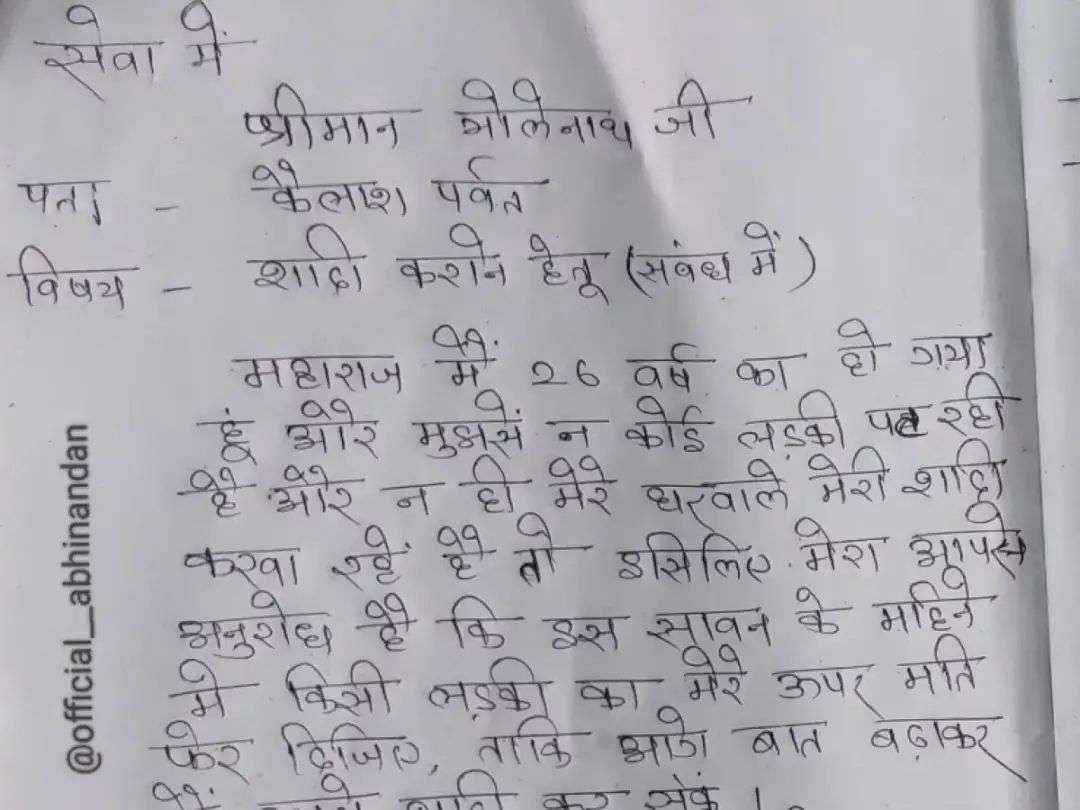 सेवा में
श्रीमान भोलेनाथ जी
पता - कैलाश पर्वत
विषय - शादी कराने हेतू (संबंध में)
महाराज मैं 26 वर्ष का हो गया
हूं और मुझसें न कोई लड़की पट रही
है और न ही मेरे घरवाले मेरी शादी
करवा रहें है तो इसिलिए मेरा आपसे
अनुरोध है कि इस सावन के महिने
मे किसी लड़की का मेरे ऊपर मति
फेर दिजिए, ताकि आगे बात बढ़ाकर
मैं कर सकें ।
@official_abhinandan